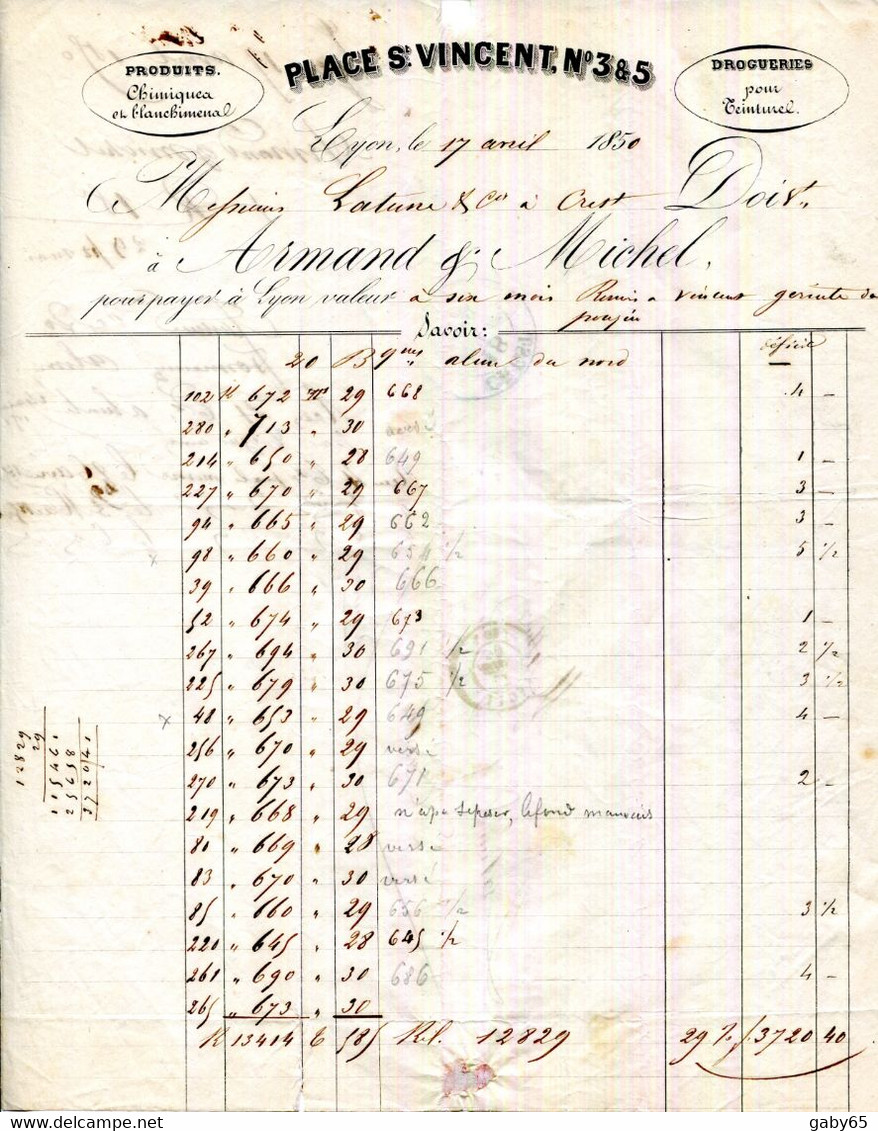 PLACE St VINCENT, No 3 & 5
PRODUITS.
Chimiques
et blanchimenal
DROGUERIES
pour
Teinturel.
Lyon, le 17 avril 1850
Messieurs Latune & Co à Crest Doivt.
à Armand & Michel,
pour payer à Lyon valeur a six mois Remis a vincent
Savoir:
20 Bques alun du nord déficit
102 K 672 Tre 29 668 4 —
280 " 713 " 30 versé
214 " 650 " 28 649 1 —
227 " 670 " 29 667 3 —
94 " 665 " 29 662 3 —
x 98 " 660 " 29 654 1/2 5 1/2
39 " 666 " 30 666
52 " 674 " 29 673 1 —
267 " 694 " 30 691 1/2 2 1/2
225 " 679 " 30 675 1/2 3 1/2
x 48 " 653 " 29 649 4 —
256 " 670 " 29 versé
270 " 673 " 30 671 2 —
219 " 668 " 29 le fond mauvais
80 " 669 " 28 versé
83 " 670 " 30 versé
85 " 660 " 29 656 1/2 3 1/2
220 " 645 " 28 645 1/2
261 " 690 " 30 686 4 —
265 " 673 " 30
K 13414 T 585 Kil. 12829 29 f. 3720 40
12829
29
gaby65